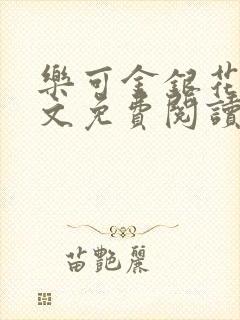 樂可金銀花
文免費閱讀
苗艷麗